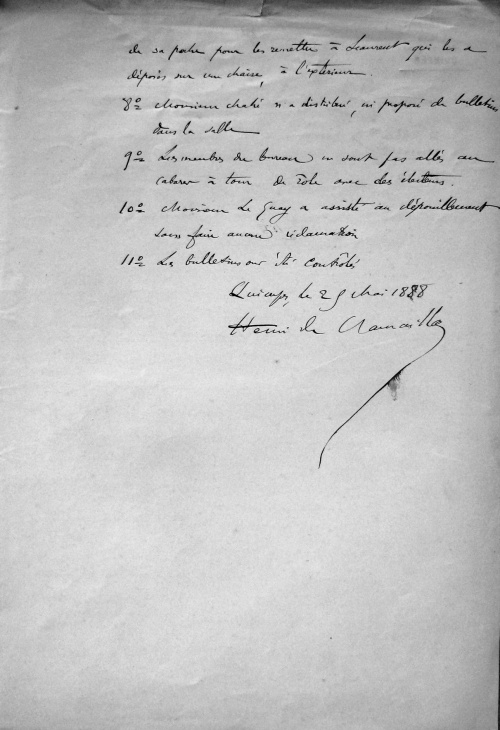 de sa poche pour les remettre à Laurent qui les a
déposés sur une chaise, à l'extérieur.
8º Monsieur Mahé n'a distribué, ni proposé de bulletins
dans la salle
9º Les membres du bureau ne sont pas allés au
cabaret à tour de rôle avec des électeurs.
10º Monsieur Le Guay a assisté au dépouillement
sans faire aucune réclamation
11º Les bulletins ont été contrôlés
le 29 Mai 1888
Henri de